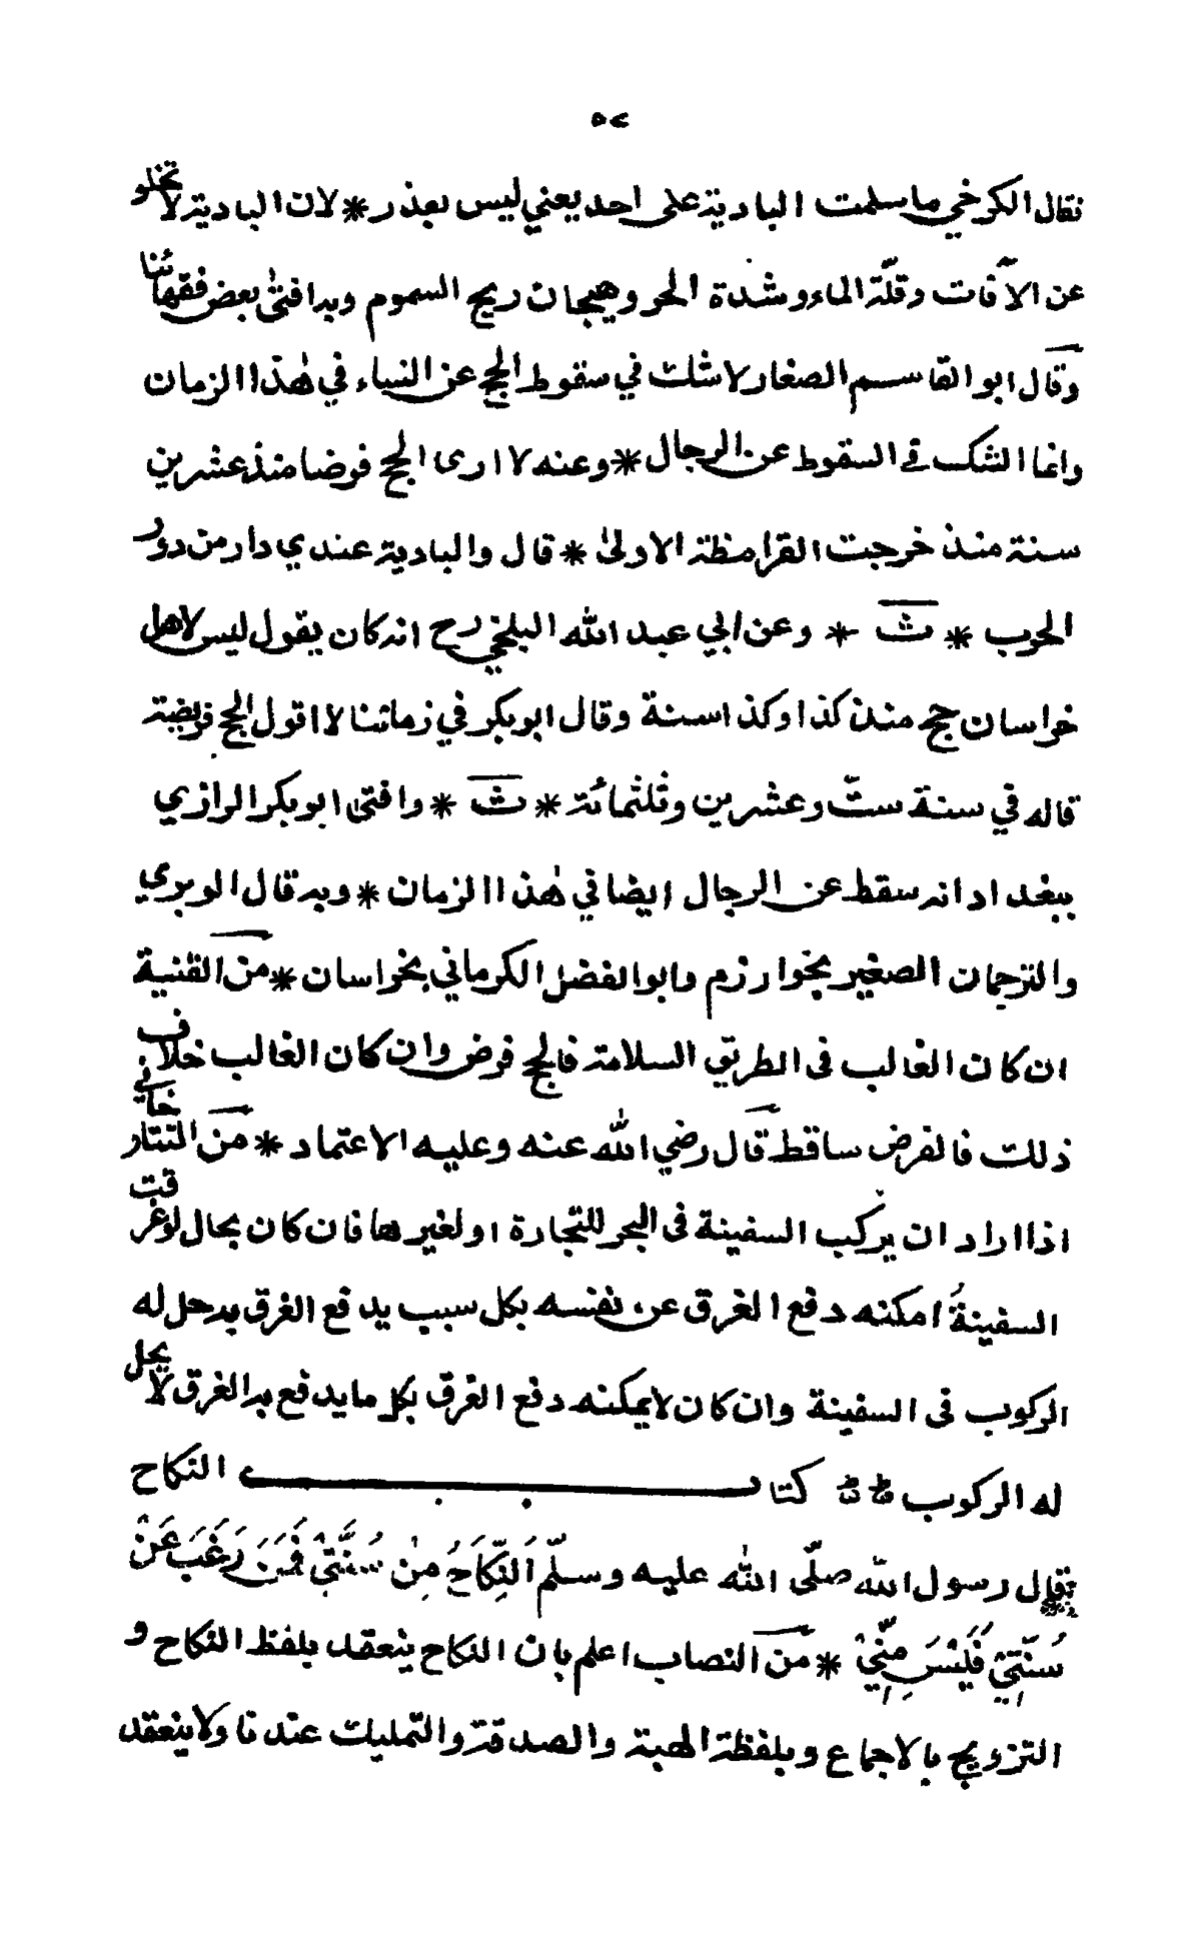 ٥٧
فقال الكرخي ما سلمت البادية على احد يعني ليس بعذر * لان البادية لا تخلو
عن الآفات وقلّة الماء وشدة الحر وهيجان ريح السموم وبه افتى بعض فقهائنا
وقال ابو القاسم الصغار لا شك في سقوط الحج عن النساء في هٰذا الزمان
وانما الشك في السقوط عن الرجال * وعنه لا ارى الحج فرضا منذ عشرين
سنة منذ خرجت القرامظة الاولى * قال والبادية عندي دار من دور
الحرب * ث * وعن ابي عبد الله البلخي رح انه كان يقول ليس لاهل
خراسان حج منذ كذا وكذا سنة وقال ابو بكر في زماننا لا اقول الحج فريضة
قاله في سنة ستّ وعشرين وثلثمائة * ث * وافتى ابو بكر الرازي
ببغداد انه سقط عن الرجال ايضا في هٰذا الزمان * وبه قال الوبري
والترجمان الصغير بخوارزم وابو الفضل الكرماني بخراسان * من القنية
ان كان الغالب فى الطريق السلامة فالحج فرض وان كان الغالب خلاف
ذلك فالفرض ساقط قال رضي الله عنه وعليه الاعتماد * من التتارخاني
اذا اراد ان يركب السفينة فى البحر للتجارة او لغيرها فان كان بحال لو غرقت
السفينةُ امكنه دفع الغرق عن نفسه بكل سبب يدفع الغرق به حل له
الركوب فى السفينة وان كان لا يمكنه دفع الغرق بكل ما يدفع به الغرق لا يحل
له الركوب كتاب النكاح
قال رسول الله صلّى الله عليه وسلّم اَلنِّكَاحُ مِنْ سُنَّتِيْ فَمَنْ رَغِبَ عَنْ
سُنَّتِيْ فَلَيْسَ مِنِّيْ * من النصاب اعلم بان النكاح ينعقد بلفظ النكاح و
التزويج بالاجماع وبلفظة الهبة والصدقة والتمليك عندنا ولا ينعقد